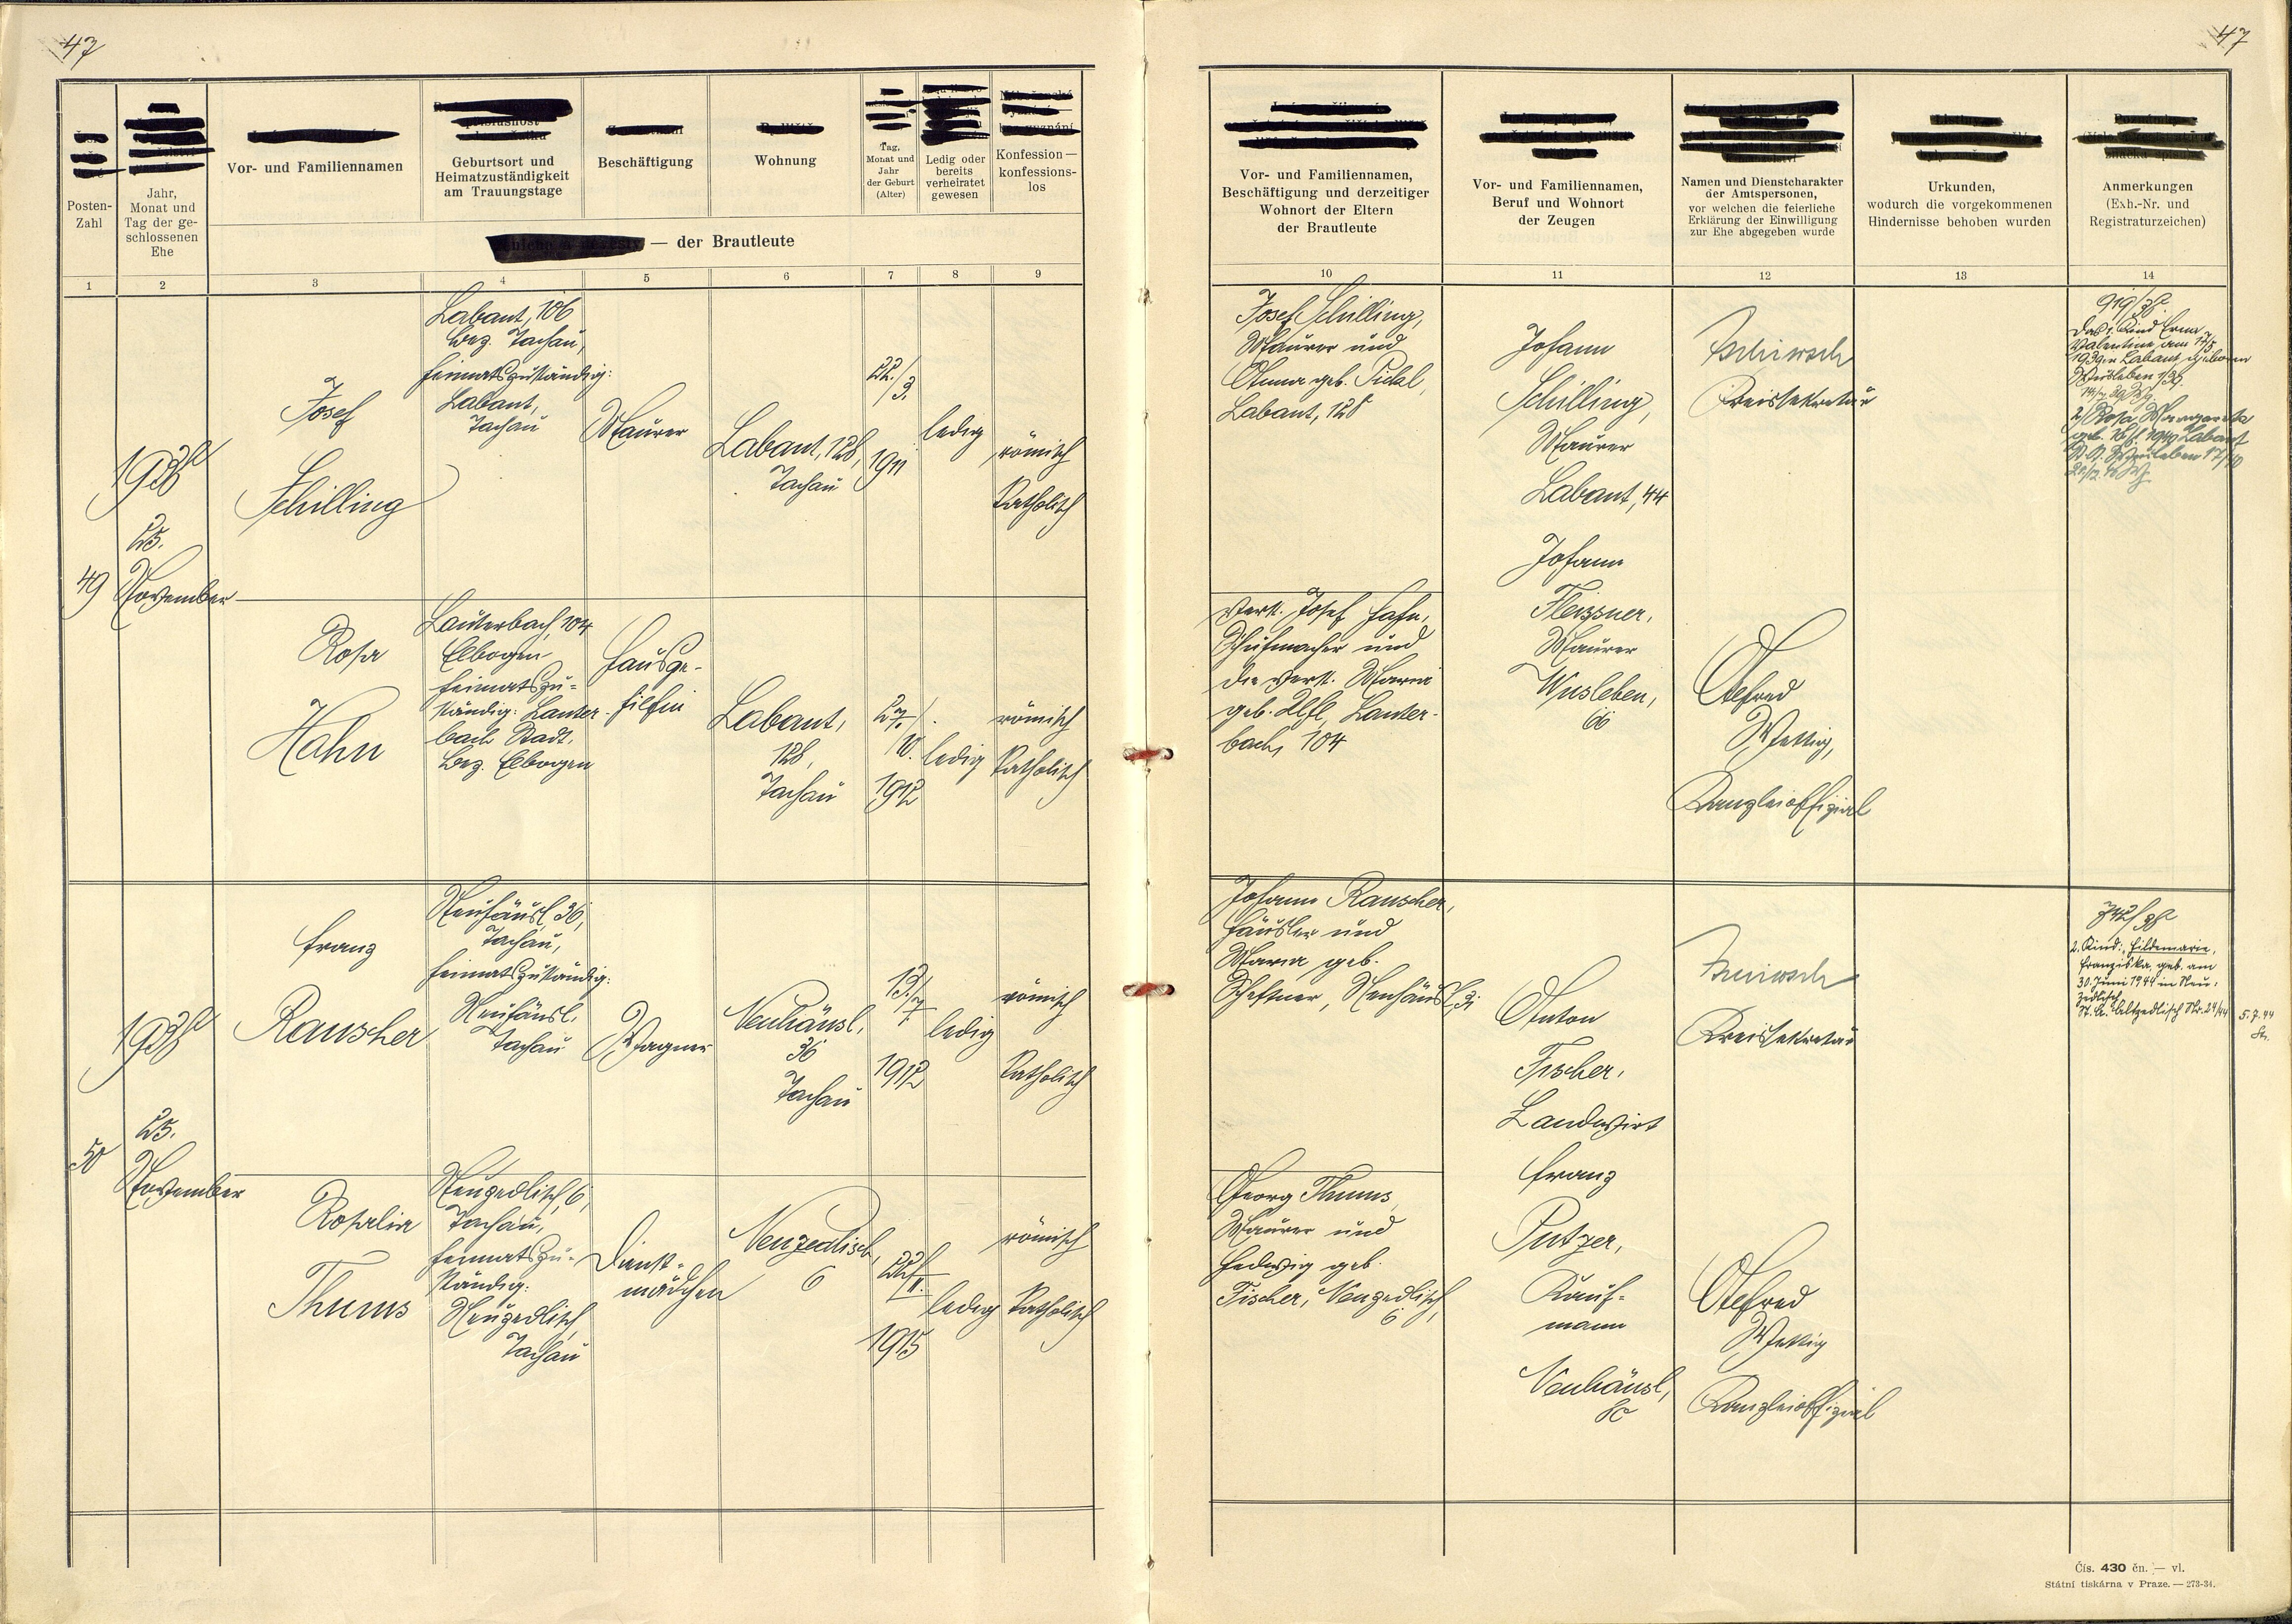 47
47
Posten-
Zahl
Jahr,
Monat und
Tag der ge-
schlossenen
Ehe
Vor- und Familiennamen
Geburtsort und
Heimatzuständigkeit
am Trauungstage
Beschäftigung
Wohnung
Tag,
Monat und
Jahr
der Geburt
(Alter)
Ledig oder
bereits
verheiratet
gewesen
Konfession —
konfessions-
los
— der Brautleute
Vor- und Familiennamen,
Beschäftigung und derzeitiger
Wohnort der Eltern
der Brautleute
Vor- und Familiennamen,
Beruf und Wohnort
der Zeugen
Namen und Dienstcharakter
der Amtspersonen,
vor welchen die feierliche
Erklärung der Einwilligung
zur Ehe abgegeben wurde
Urkunden,
wodurch die vorgekommenen
Hindernisse behoben wurden
Anmerkungen
(Exh.-Nr. und
Registraturzeichen)
1
2
3
4
5
6
7
8
9
10
11
12
13
14
49
1938
25.
November
Josef
Schilling
Labant, 106
Bez. Tachau,
heimatszuständig:
Labant,
Tachau
Maurer
Labant, 128,
Tachau
22./3.
1911
ledig
römisch
katholisch
Josef Schilling,
Maurer und
Anna geb.
Labant, 128
Johann
Schilling,
Maurer
Labant, 44
Johann
Fleissner,
Maurer
Wusleben,
66
Kreissekretär
919/38
Das 1. Kind Erna
Valentine am 17/5
1939 in Labant geboren
Wusleben 1/39.
2/ Rosa Margareta
Rosa
Hahn
Lauterbach, 104
Elbogen
heimatszu-
ständig: Lauter-
bach Stadt,
Bez. Elbogen
Hausge-
hilfin
Labant,
128,
Tachau
27./
10.
1912
ledig
römisch
katholisch
verst. Josef Hahn,
Schuhmacher und
die verst. Maria
geb. Lauter-
bach, 104
Alfred
Wettig,
Kanzleioffizial
50
1938
25.
November
Franz
Rauscher
Neuhäusl, 36,
Tachau,
heimatszuständig:
Neuhäusl,
Tachau
Wagner
Neuhäusl,
36
Tachau
13./7.
1912
ledig
römisch
katholisch
Johann Rauscher,
Häusler und
Maria geb.
Schaffner, Neuhäusl, 3;
Anton
Fischer,
Landwirt
Franz
Putzer,
Kauf-
mann
Neuhäusl,
Kreissekretär
742/38
2. Kind: Hildemarie,
Franziska, geb. am
30. Juni 1944 in Neu-
zedlisch
St. A. Altzedlisch Nr. 24/44
5.7.44
Rosalia
Thums
Neuzedlisch, 6,
Tachau,
heimatszu-
ständig:
Neuzedlisch,
Tachau
Dienst-
mädchen
Neuzedlisch,
6
1915
ledig
römisch
katholisch
Georg Thums,
Maurer und
Hedwig geb.
Fischer, Neuzedlisch,
6
Alfred
Wettig
Kanzleioffizial
Čís. 430 čn. — vl.
Státní tiskárna v Praze. — 273-34.